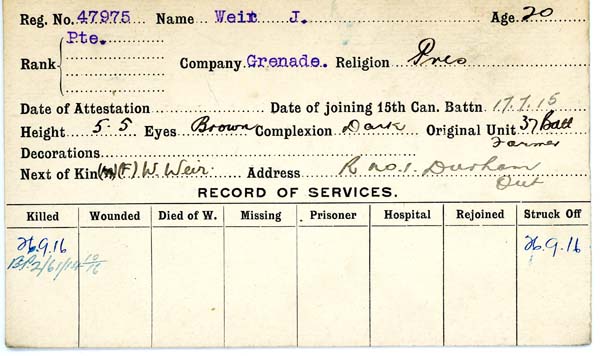 Reg. No. 47975 Name Weir J. Age. 20
Pte.
Rank Company Grenade. Religion Pres
Date of Attestation Date of joining 15th Can. Battn. 17.7.15
Height 5.5 Eyes Brown Complexion Dark Original Unit 37 Batt
Decorations Farmer
Next of Kin (F) W. Weir. Address R no. 1. Durham
Ont
RECORD OF SERVICES.
Killed Wounded Died of W. Missing Prisoner Hospital Rejoined Struck Off
26.9.16 26.9.16